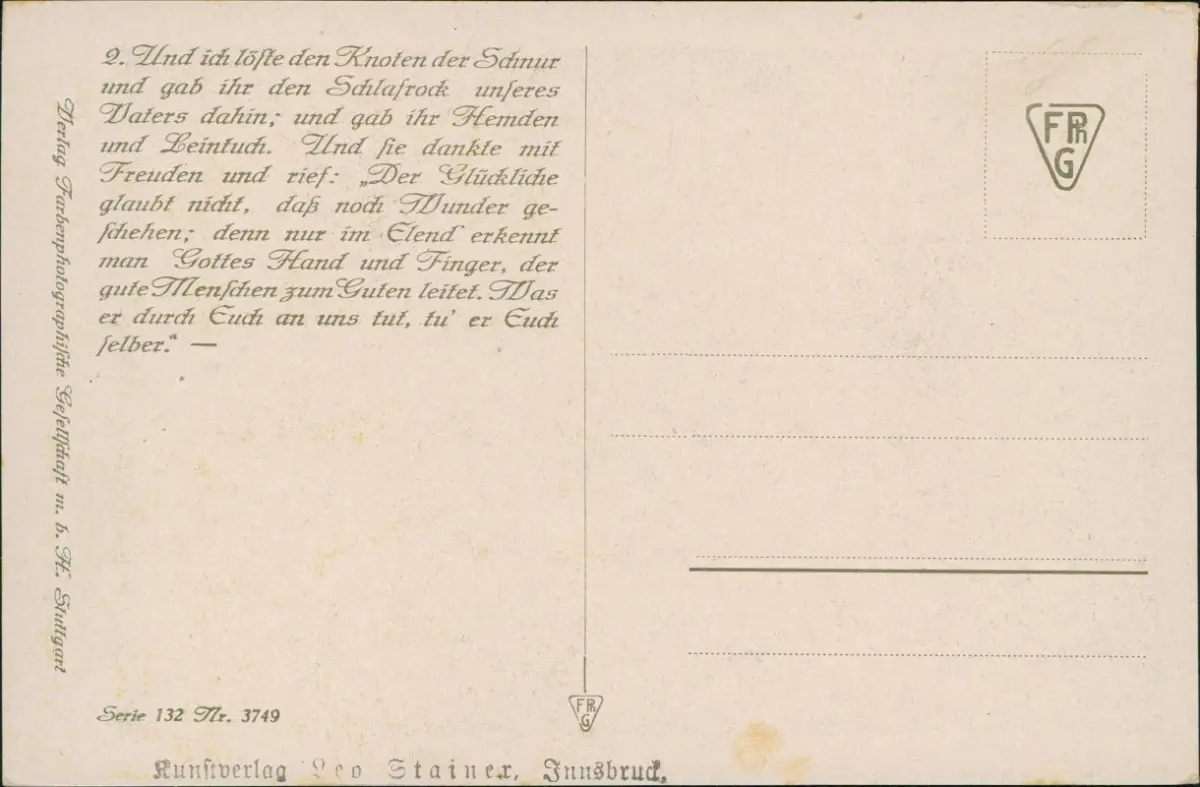 2. Und ich löſte den Knoten der Schnur
und gab ihr den Schlafrock unſeres
Vaters dahin; und gab ihr Hemden
und Leintuch. Und ſie dankte mit
Freuden und rief: „Der Glückliche
glaubt nicht, daß noch Wunder ge-
ſchehen; denn nur im Elend erkennt
man Gottes Hand und Finger, der
gute Menſchen zum Guten leitet. Was
er durch Euch an uns tut, tu' er Euch
ſelber.“ —
Verlag Farbenphotographiſche Geſellſchaft m. b. H. Stuttgart
Serie 132 Nr. 3749
FPhG
FPhG
Kunſtverlag Leo Stainer, Innsbruck.